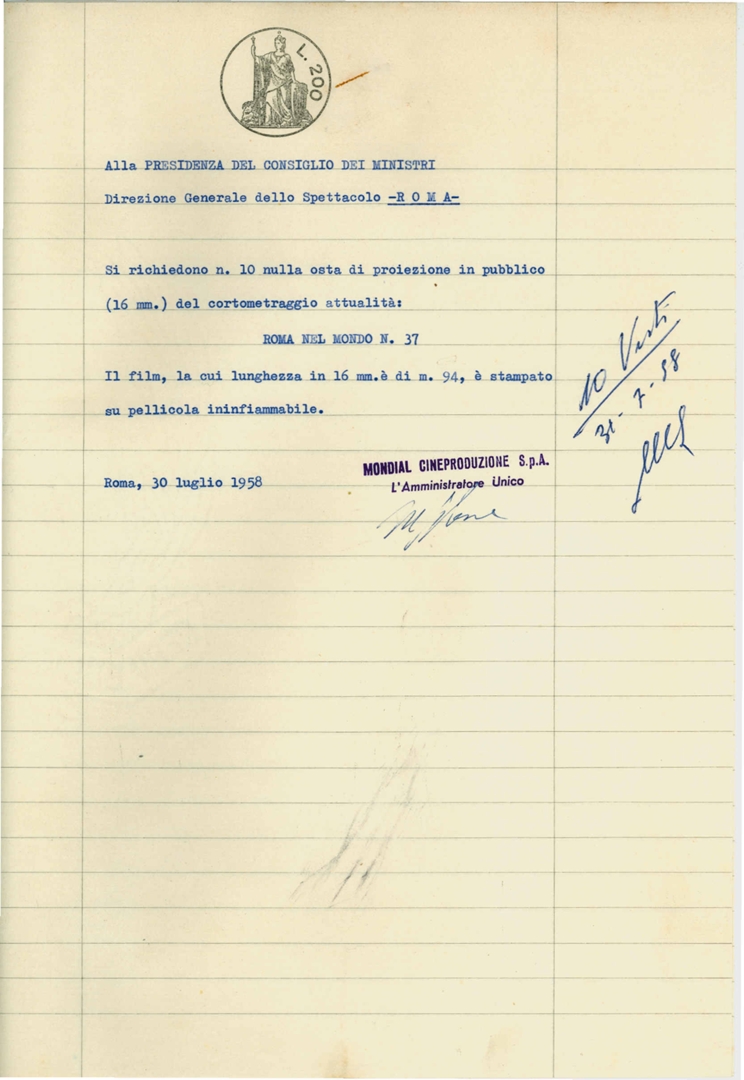 L. 200
Alla PRESIDENZA DEL CONSIGLIO DEI MINISTRI
Direzione Generale dello Spettacolo -R O M A-
Si richiedono n. 10 nulla osta di proiezione in pubblico
(16 mm.) del cortometraggio attualità:
ROMA NEL MONDO N. 37
Il film, la cui lunghezza in 16 mm.è di m. 94, è stampato
su pellicola ininfiammabile.
Roma, 30 luglio 1958
MONDIAL CINEPRODUZIONE S.p.A.
L'Amministratore Unico
10 Visti
31-7-58